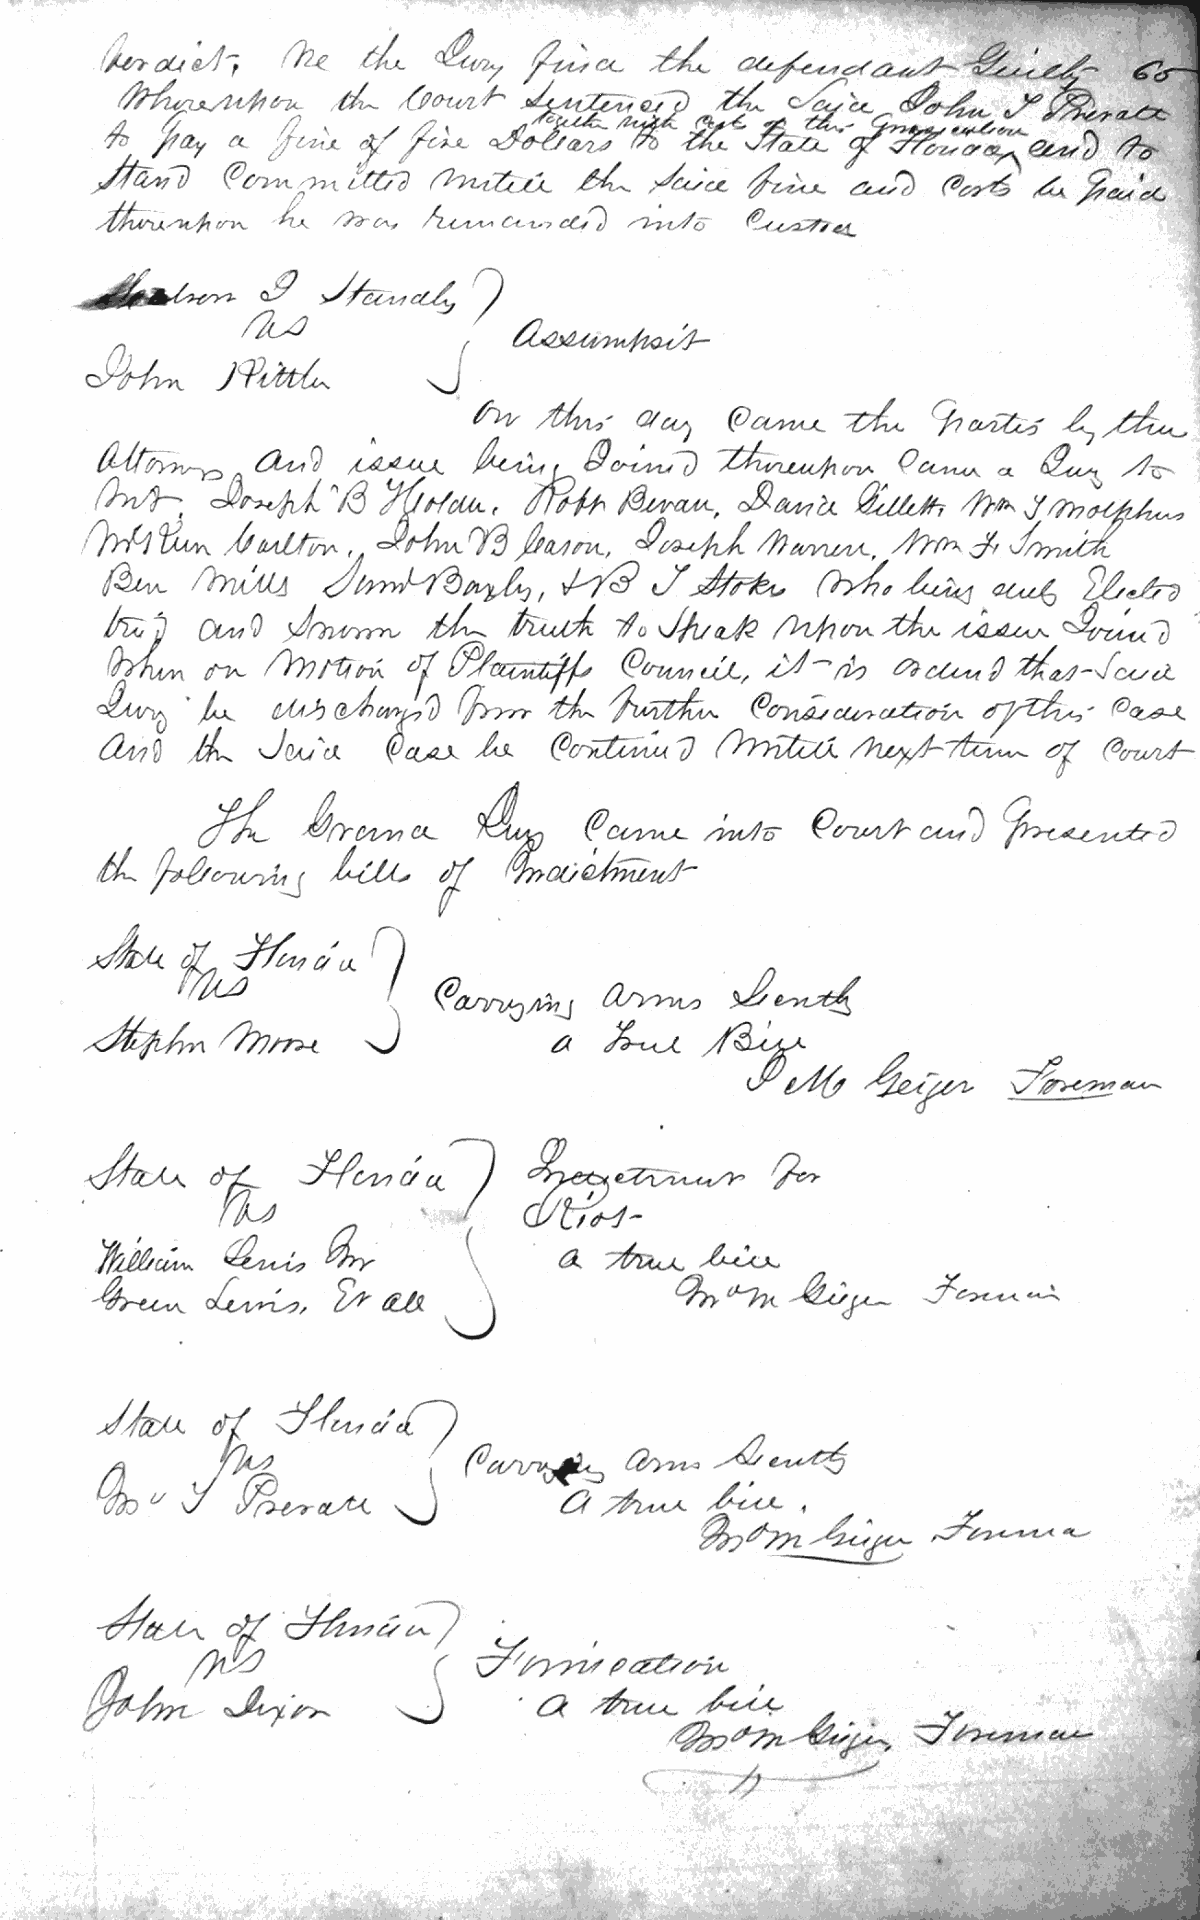 verdict, We the Jury find the defendant Guilty 65
Whereupon the Court Sentensed the Said John T Prevatt
together with cost of this prosecution
to pay a fine of five Dollars to the State of Florida, and to
Stand Committed untill the Said fine and Costs be paid
thereupon he was remanded into Custod
J Standly
vs
John Pittler
Assumpsit
On this day Came the parties by their
Attorneys and issue being Joined thereupon Came a Jury to
wit. Joseph B Holder, Robt Bevan, David Gillett, Wm J Molphus
Carlton, John B Cason, Joseph Warren, Wm F. Smith
Ben Mills Saml Bagly, & B J Stoks who being duly Elected
tried and Sworn the truth to Speak upon the issue Joined
When on Motion of Plaintiffs Council, it is ordered that Said
Jury be discharged from the further Consideration of this Case
And the Said Case be Continued untill next term of Court
The Grand Jury Came into Court and presented
the following bills of Indictment
State of Florida
vs
Stephen Moore
Carrying Arms Secretly
a True Bill
J M Geiger Foreman
State of Florida
vs
William Lewis
Green Lewis, Et all
Indictment for
Riot
a true bill
M Geiger Foreman
State of Florida
vs
T Prevatt
Carrying Arms Secretly
A true bill.
M Geiger Forema
State of Florida
vs
John Dixon
Fornication
a true bill
M Geiger, Foreman